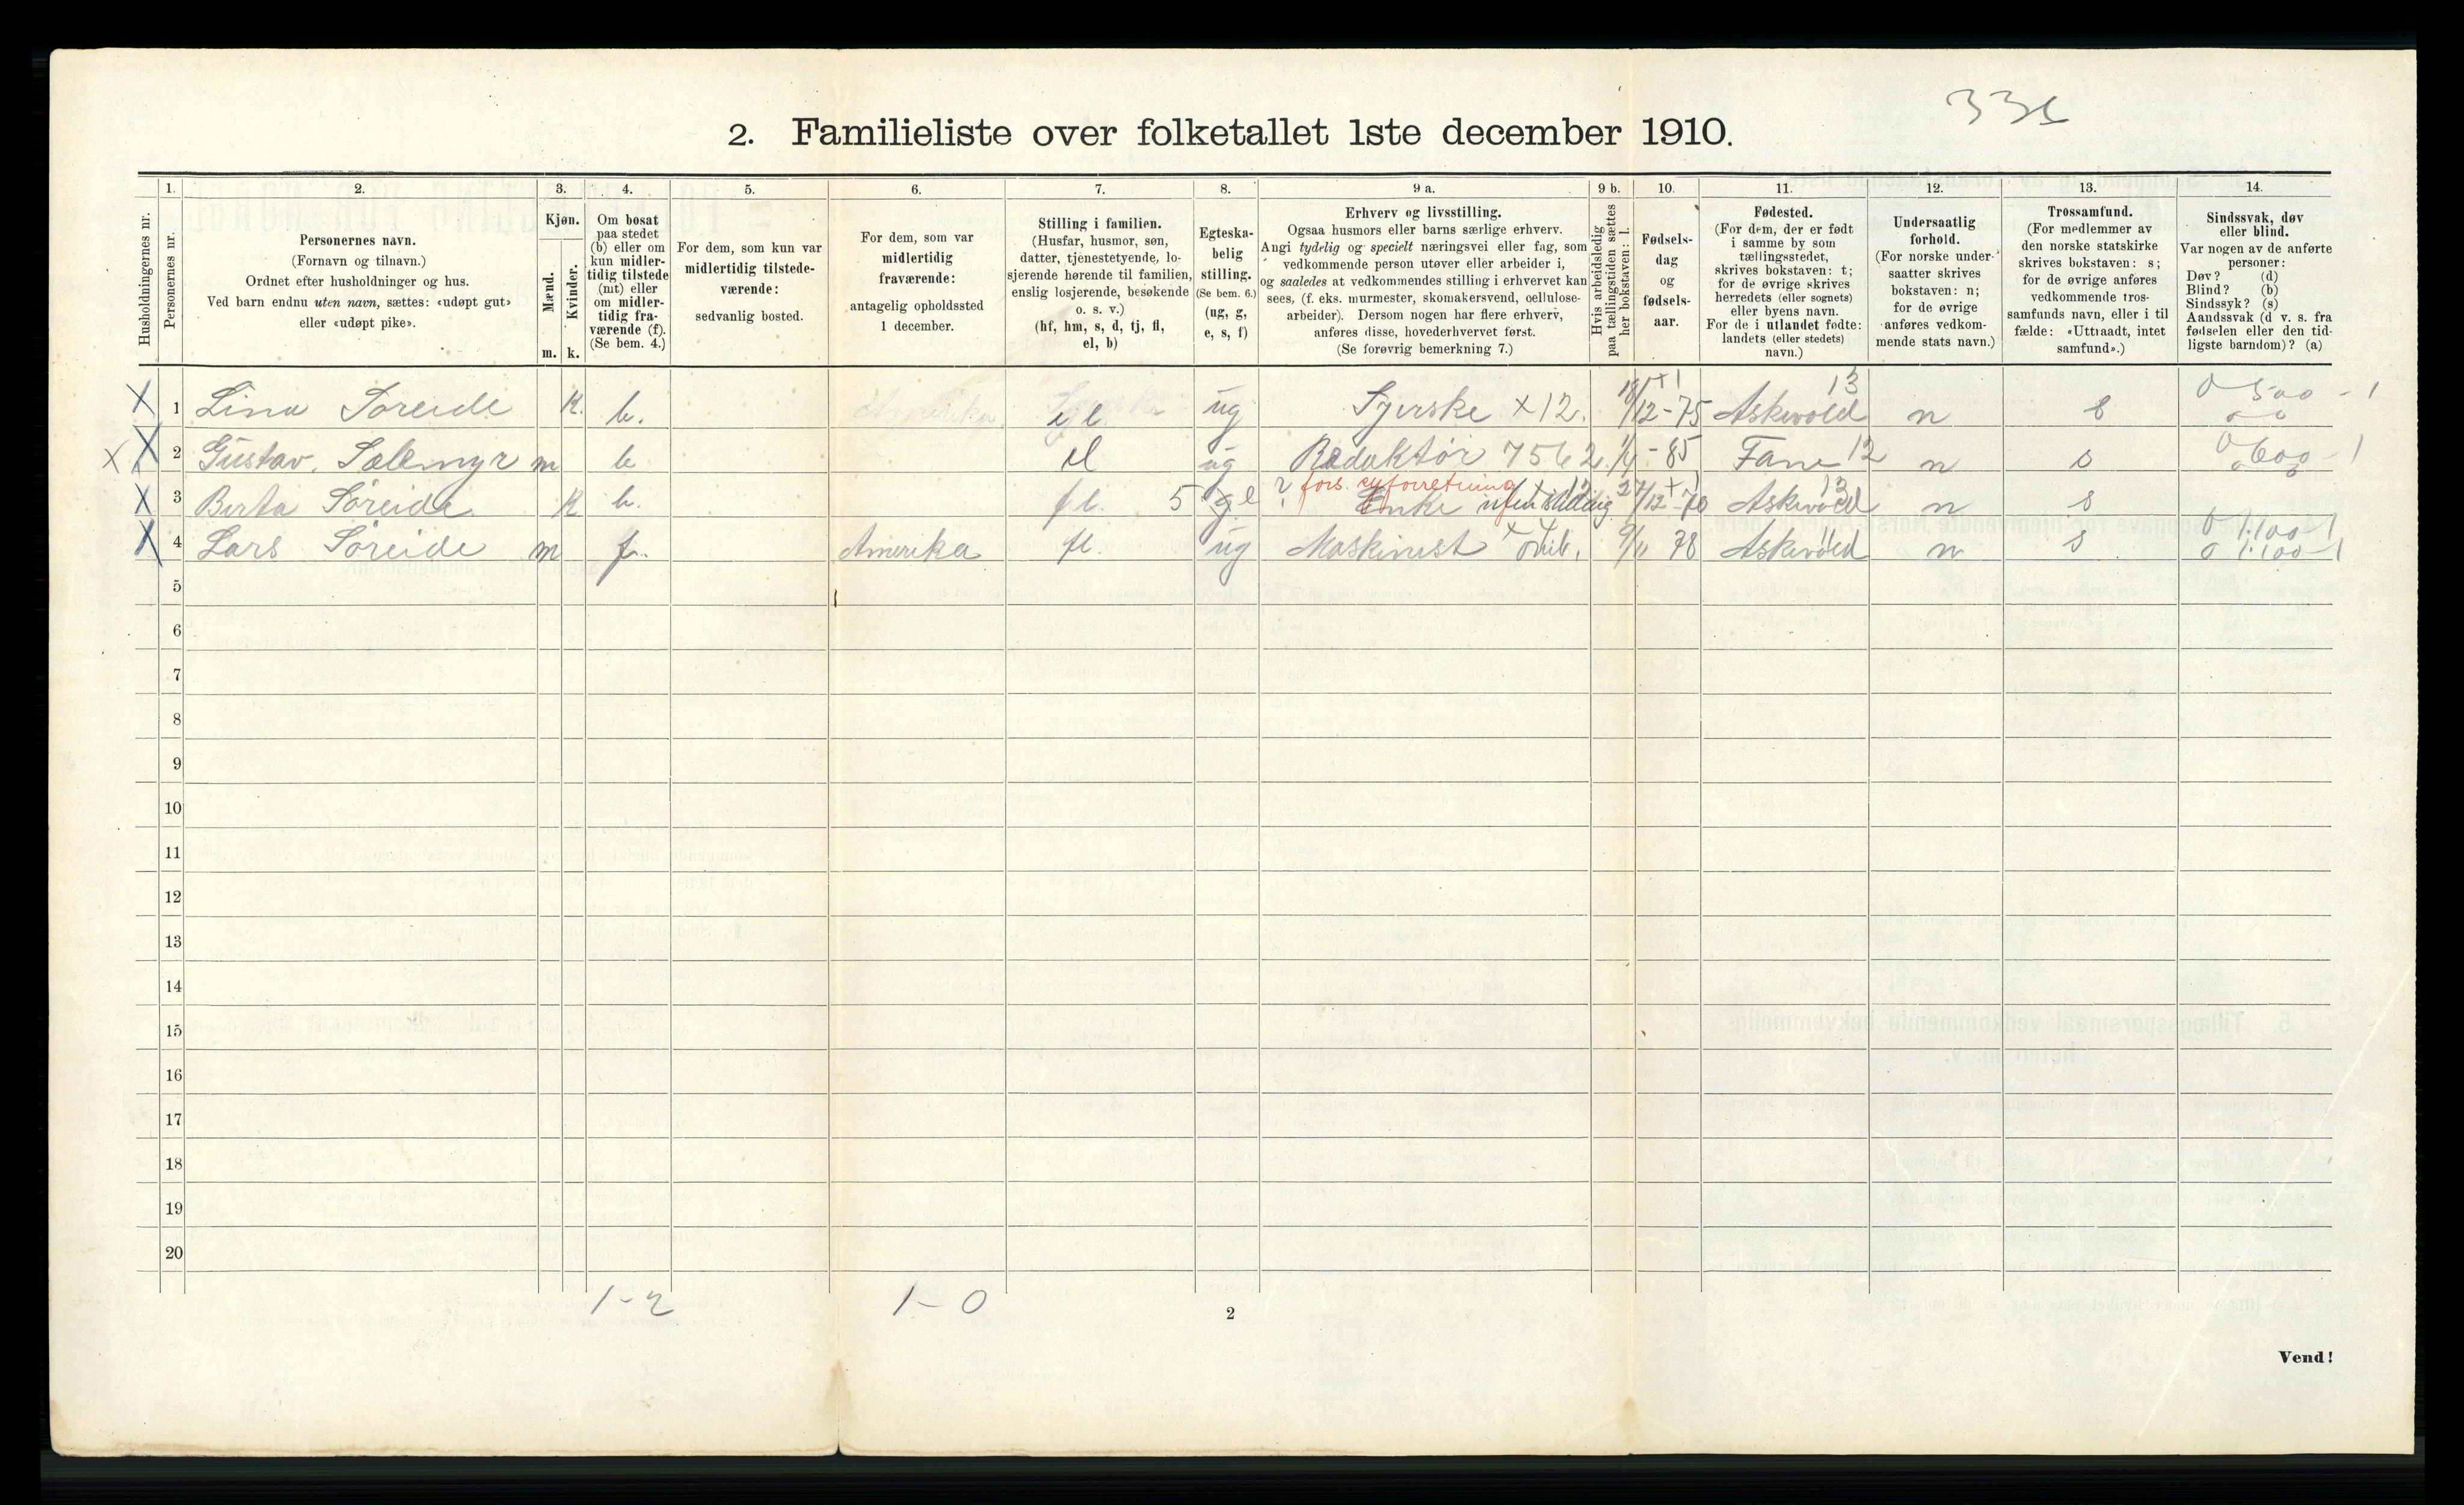 2. Familieliste over folketallet 1ste december 1910.
Husholdningernes nr.
1.
Personernes nr.
2.
Personernes navn.
(Fornavn og tilnavn.)
Ordnet efter husholdninger og hus.
Ved barn endnu uten navn, sættes: «udøpt gut»
eller «udøpt pike».
3.
Kjøn.
Mænd.
Kvinder.
m. k.
4.
Om bosat
paa stedet
(b) eller om
kun midler-
tidig tilstede
(mt) eller
om midler-
tidig fra-
værende (f).
(Se bem. 4.)
5.
For dem, som kun var
midlertidig tilstede-
værende:
sedvanlig bosted.
6.
For dem, som var
midlertidig
fraværende:
antagelig opholdssted
1 december.
7.
Stilling i familien.
(Husfar, husmor, søn,
datter, tjenestetyende, lo-
sjerende hørende til familien,
enslig losjerende, besøkende
o. s. v.)
(hf, hm, s, d, tj, fl,
el, b)
8.
Egteska-
belig
stilling.
(Se bem. 6.)
(ug, g,
e, s, f)
9 a.
Erhverv og livsstilling.
Ogsaa husmors eller barns særlige erhverv.
Angi tydelig og specielt næringsvei eller fag, som
vedkommende person utøver eller arbeider i,
og saaledes at vedkommendes stilling i erhvervet kan
sees, (f. eks. murmester, skomakersvend, cellulose-
arbeider). Dersom nogen har flere erhverv,
anføres disse, hovederhvervet først.
(Se forøvrig bemerkning 7.)
9 b.
Hvis arbeidsledig
paa tællingstiden sættes
her bokstaven: l.
10.
Fødsels-
dag
og
fødsels-
aar.
11.
Fødested.
(For dem, der er født
i samme by som
tællingsstedet,
skrives bokstaven: t;
for de øvrige skrives
herredets (eller sognets)
eller byens navn.
For de i utlandet fødte:
landets (eller stedets)
navn.)
12.
Undersaatlig
forhold.
(For norske under-
saatter skrives
bokstaven: n;
for de øvrige
anføres vedkom-
mende stats navn.)
13.
Trossamfund.
(For medlemmer av
den norske statskirke
skrives bokstaven: s;
for de øvrige anføres
vedkommende tros-
samfunds navn, eller i til
fælde: «Uttraadt, intet
samfund».)
14.
Sindssvak, døv
eller blind.
Var nogen av de anførte
personer:
Døv? (d)
Blind? (b)
Sindssyk? (s)
Aandssvak (d v. s. fra
fødselen eller den tid-
ligste barndom)? (a)
X 1 Lina Soreide K. b. el ug Syerske X12. 18/12-75 Askevold 13 n s 0 500 - 1
X X 2 Gustav. Sælemyr m b el ug Redaktør 7562 1/4 - 85 Fane 12 n s 0 600 - 1
fors. syforretning
X 3 Berta Søreide K b. fl. 5 g e ? Enke 27/12-70 Askevold 13 n s
X 4 Lars Søreide m f. Amerika fl. ug Maskinist 9/11 78 Askevold n s 0 1.100-1
5
6
7
8
9
10
11
12
13
14
15
16
17
18
19
20
1-2 1-0
2
Vend!